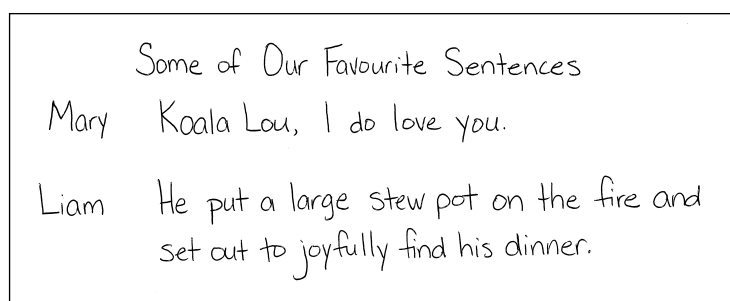 Some of Our Favourite Sentences
Mary Koala Lou, I do love you.
Liam He put a large stew pot on the fire and
set out to joyfully find his dinner.